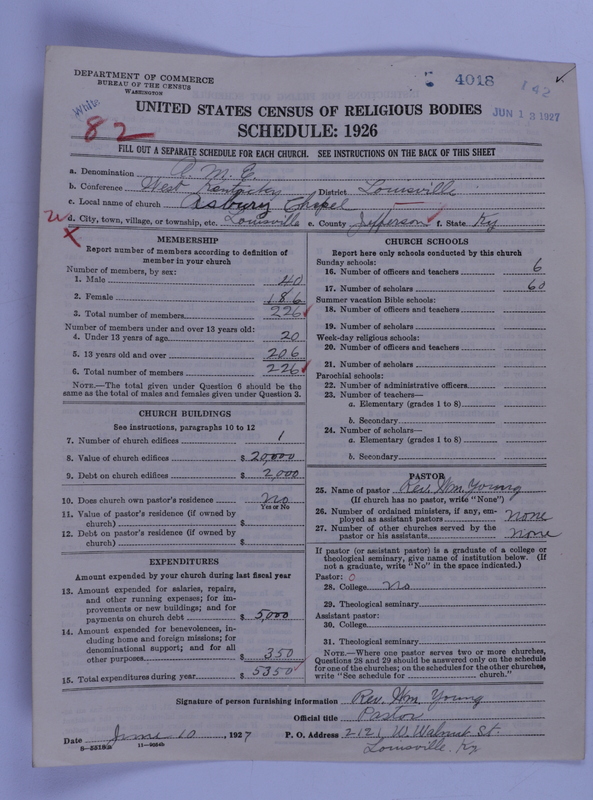 DEPARTMENT OF COMMERCE
BUREAU OF THE CENSUS
WASHINGTON
4018
142
JUN 13 1927
82
UNITED STATES CENSUS OF RELIGIOUS BODIES
SCHEDULE: 1926
FILL OUT A SEPARATE SCHEDULE FOR EACH CHURCH. SEE INSTRUCTIONS ON THE BACK OF THIS SHEET
a. Denomination A. M. E.
b. Conference West Kentucky District Louisville
c. Local name of church Asbury Chapel
d. City, town, village, or township, etc. Louisville e. County Jefferson f. State Ky
MEMBERSHIP
Report number of members according to definition of
member in your church
Number of members, by sex:
1. Male 40
2. Female 186
3. Total number of members 226
Number of members under and over 13 years old:
4. Under 13 years of age 20
5. 13 years old and over 206
6. Total number of members 226
NOTE.—The total given under Question 6 should be
the same as the total of males and females given under Question 3.
CHURCH BUILDINGS
See instructions, paragraphs 10 to 12
7. Number of church edifices 1
8. Value of church edifices $ 20,000
9. Debt on church edifices $ 2,000
10. Does church own pastor's residence No
Yes or No
11. Value of pastor's residence (if owned by
church) $
12. Debt on pastor's residence (if owned by
church) $
EXPENDITURES
Amount expended by your church during last fiscal year
13. Amount expended for salaries, repairs,
and other running expenses; for im-
provements or new buildings; and for
payments on church debt $ 5,000
14. Amount expended for benevolences, in-
cluding home and foreign missions; for
denominational support; and for all
other purposes $ 350
15. Total expenditures during year $ 5350
CHURCH SCHOOLS
Report here only schools conducted by this church
Sunday schools:
16. Number of officers and teachers 6
17. Number of scholars 60
Summer vacation Bible schools:
18. Number of officers and teachers
19. Number of scholars
Week-day religious schools:
20. Number of officers and teachers
21. Number of scholars
Parochial schools:
22. Number of administrative officers
23. Number of teachers—
a. Elementary (grades 1 to 8)
b. Secondary
24. Number of scholars—
a. Elementary (grades 1 to 8)
b. Secondary
PASTOR
25. Name of pastor Rev. Wm. Young
(If church has no pastor, write "None")
26. Number of ordained ministers, if any, em-
ployed as assistant pastors none
27. Number of other churches served by the
pastor or his assistants none
If pastor (or assistant pastor) is a graduate of a college or
theological seminary, give name of institution below. (If
not a graduate, write "No" in the space indicated.)
Pastor: 0
28. College No
29. Theological seminary
Assistant pastor:
30. College
31. Theological seminary
NOTE.—Where one pastor serves two or more churches,
Questions 28 and 29 should be answered only on the schedule
for one of the churches; on the schedules for the other churches,
write "See schedule for church."
Signature of person furnishing information Rev. Wm. Young
Official title Pastor
Date June 10, 1927 P. O. Address 2121 W. Walnut St.
8-5319a 11-9024b Louisville, Ky